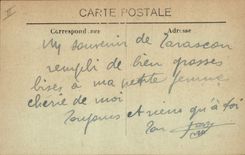 CARTE POSTALE
Correspondance
Adresse
Un souvenir de Tarascon
rempli de bien grosses
bises à ma petite femme
chérie de moi
Toujours et rien qu'à toi
Ton